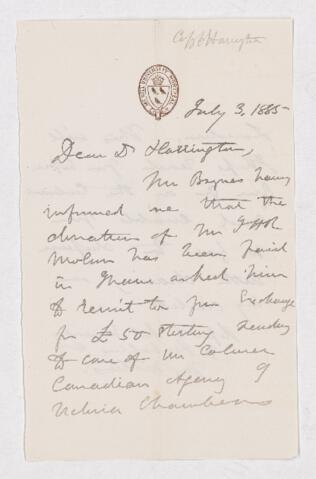 B J Harrington
McGILL UNIVERSITY MONTREAL
July 3, 1885
Dear Dr Harrington,
Mr Baynes having
informed me that the
donation of Mr J H R
Molson has been paid
in I have asked him
to remit to you Exchange
for £50 sterling sending
to care of Mr Colmer
Canadian Agency 9
Victoria Chambers